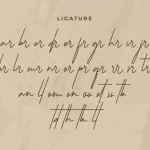 LIGATURE
ar br cr dr er fr gr hr ir jr
kr lr mr nr or pr qr rr ir tr
an ll om on oo ot ss th
td th tk lt